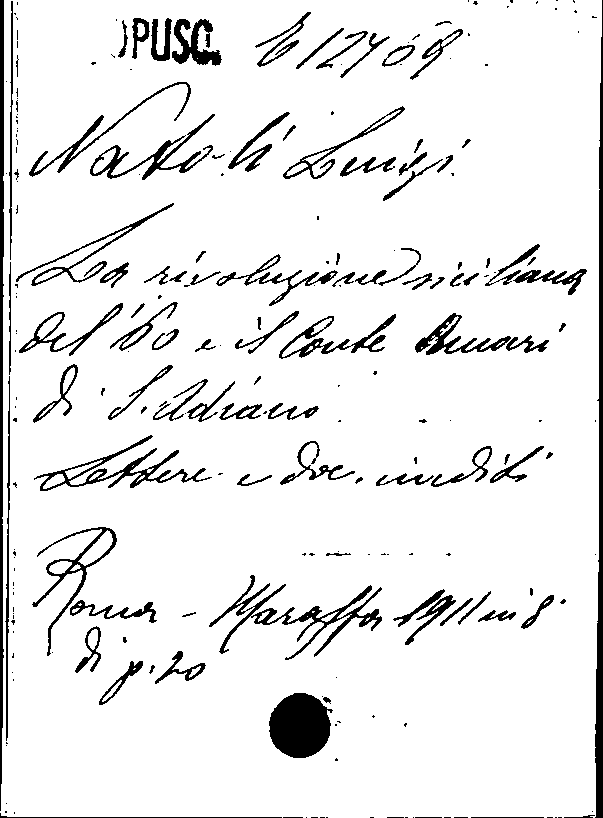 OPUSC. E 12709
Natoli Luigi
La rivoluzione siciliana
del '60 e il Conte Amari
di S. Adriano
Lettere e doc. inediti
Roma - Maraffa 1911 in 8°
di p. 20